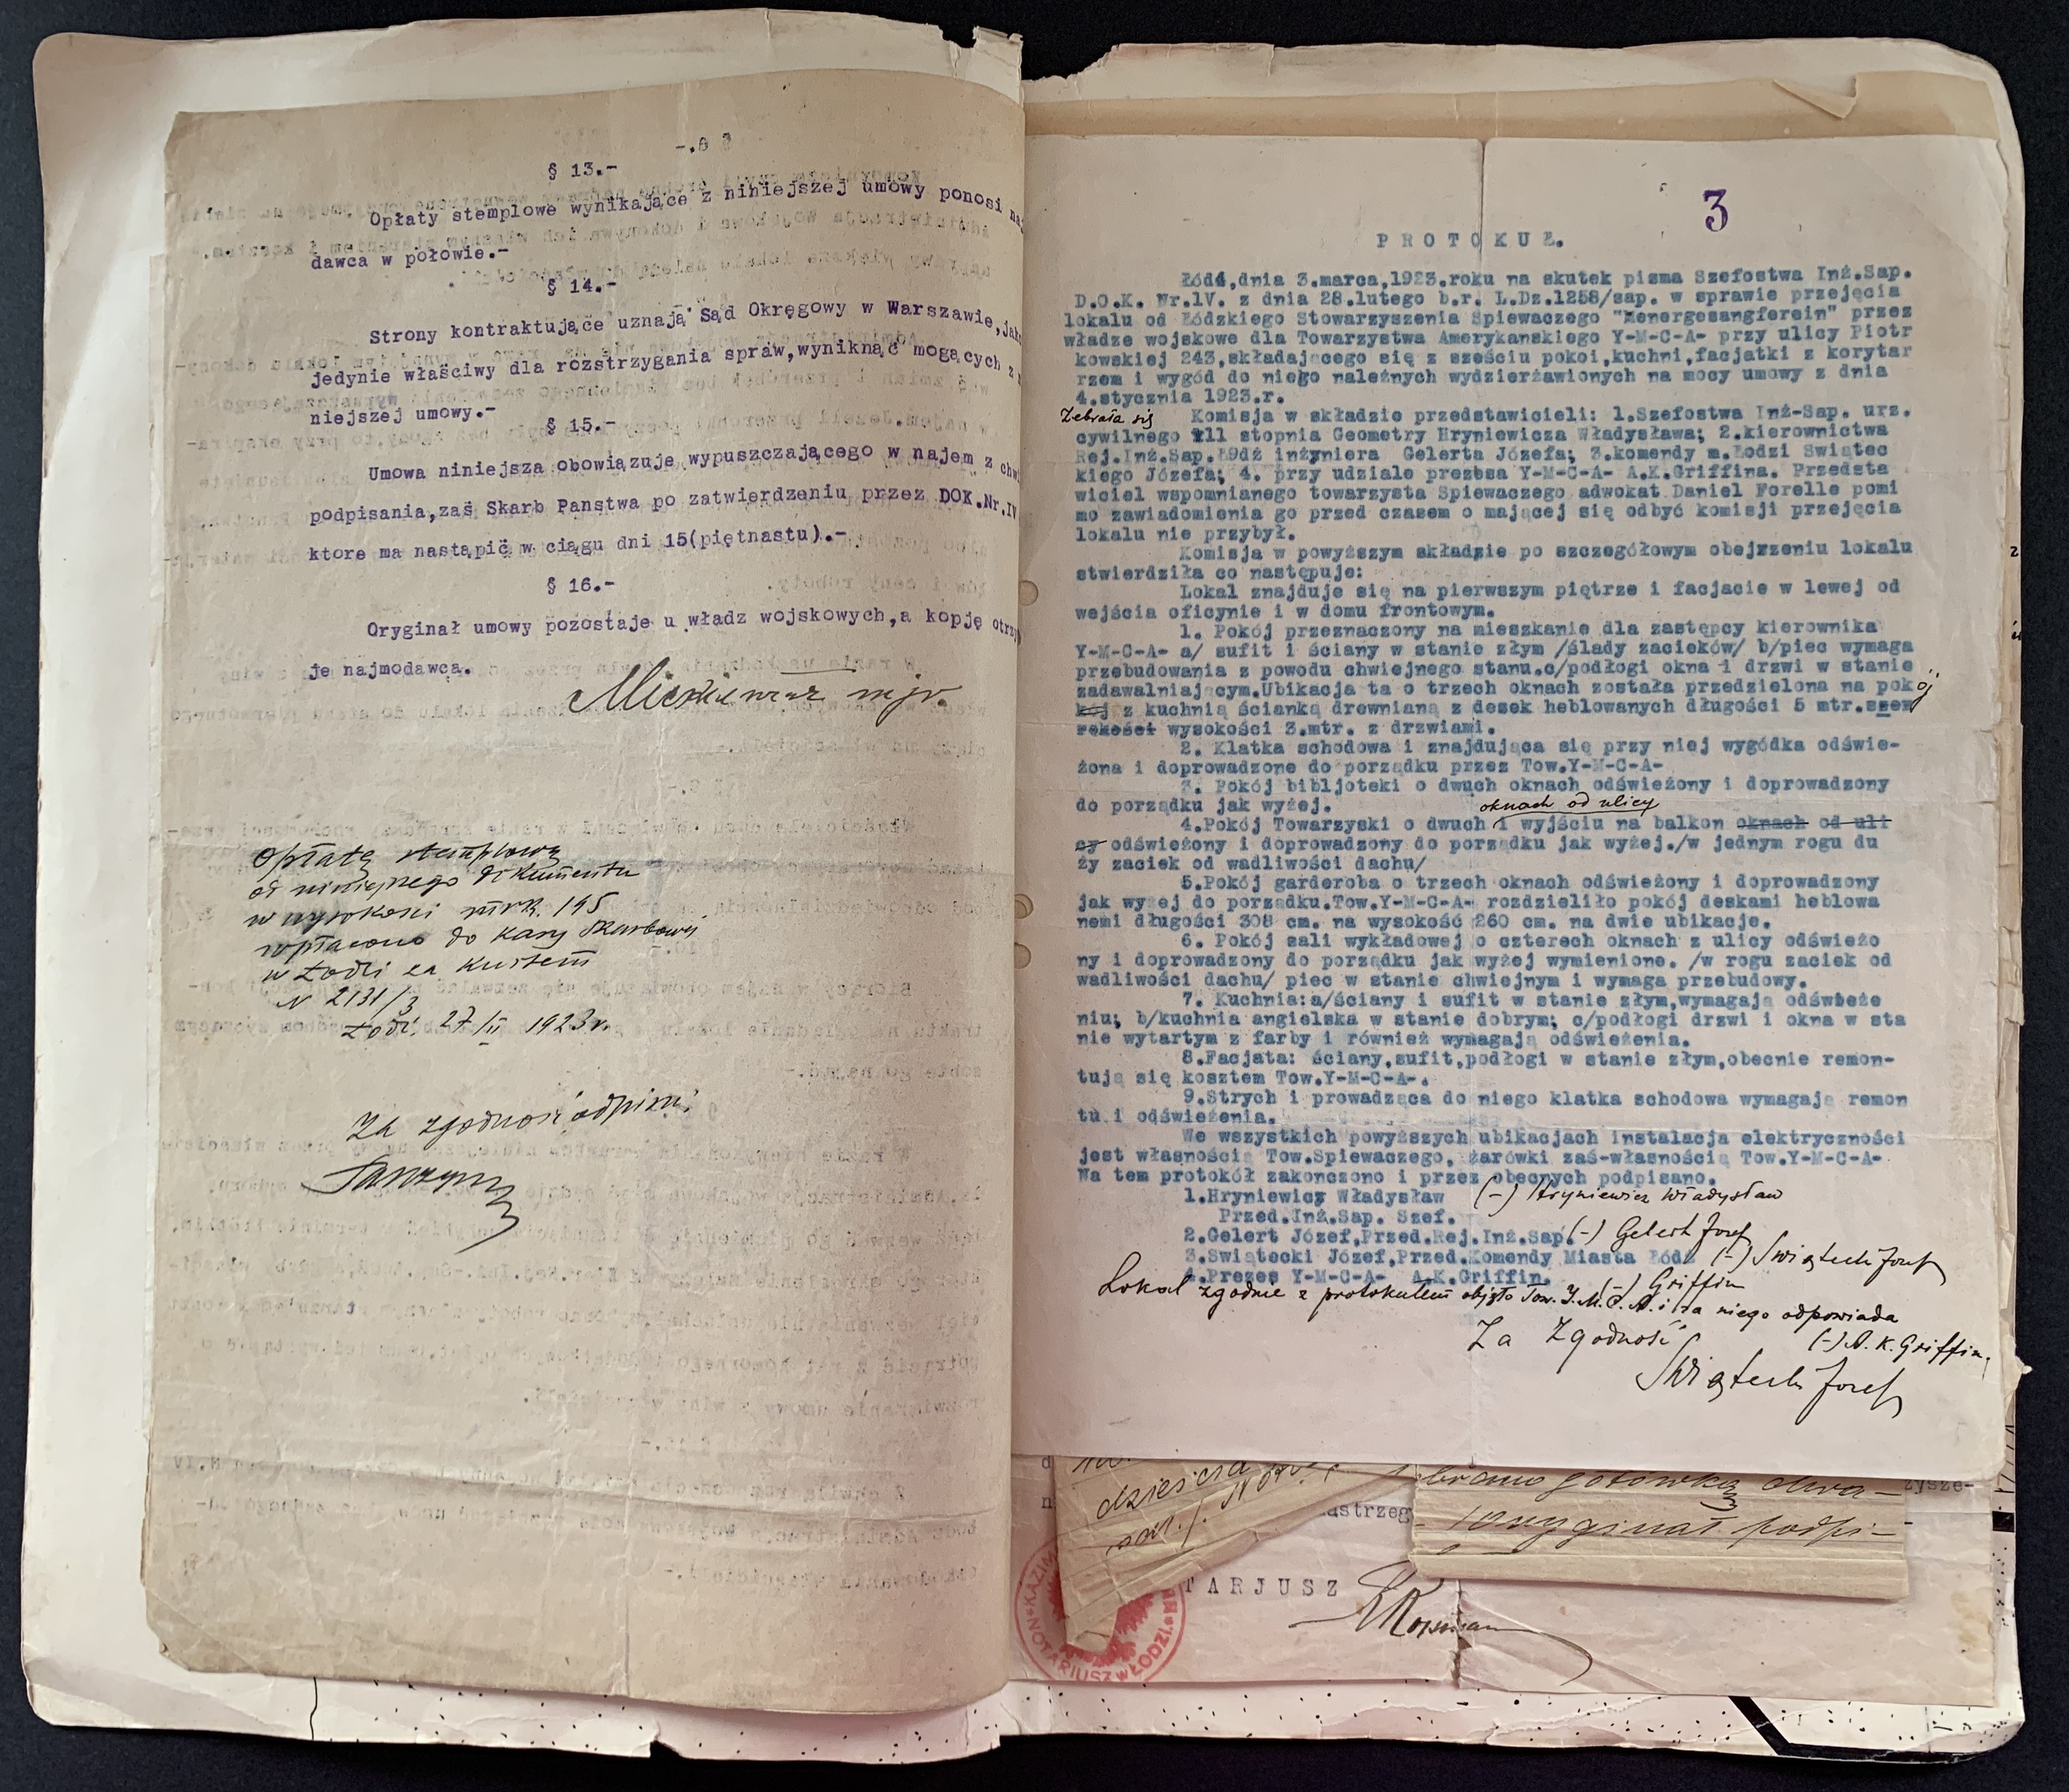 § 13.-
Opłaty stemplowe wynikające z niniejszej umowy ponosi
dawca w połowie.-
§ 14.-
Strony kontraktujące uznają Sąd Okręgowy w Warszawie,
jedynie właściwy dla rozstrzygania spraw,wyniknąć mogących z
niejszej umowy.-
§ 15.-
Umowa niniejsza obowiązuje wypuszczającego w najem z
podpisania,zaś Skarb Państwa po zatwierdzeniu przez DOK.Nr.IV
ktore ma nastąpić w ciągu dni 15(piętnastu).-
§ 16.-
Oryginał umowy pozostaje u władz wojskowych,a kopję
je najmodawca.
mjr.
Opłatę stemplową
od niniejszego dokumentu
w wysokości mrk. 195
wpłacono do kasy skarbowej
w Łodzi za kwitem
N 2131/3
Łódź, 27/II 1923 r.
Za zgodność odpisu:
3
PROTOKUŁ.
Łódź,dnia 3.marca,1923.roku na skutek pisma Szefostwa Inż.Sap.
D.O.K. Nr.1V. z dnia 28.lutego b.r. L.Dz.1258/sap. w sprawie przejęcia
lokalu od Łódzkiego Stowarzyszenia Spiewaczego "Menergesangferein" przez
władze wojskowe dla Towarzystwa Amerykanskiego Y-M-C-A- przy ulicy Piotr
kowskiej 243,składającego się z sześciu pokoi,kuchni,facjatki z korytar
rzem i wygód do niego należnych wydzierżawionych na mocy umowy z dnia
4.stycznia 1923.r.
Zebrała się Komisja w składzie przedstawicieli: 1.Szefostwa Inż-Sap. urz.
cywilnego Vll stopnia Geometry Hryniewicza Władysława; 2.kierownictwa
Rej.Inż.Sap.Łódź inżyniera Gelerta Józefa; 3.komendy m.Łodzi Swiątec
kiego Józefa; 4. przy udziale prezesa Y-M-C-A- A.K.Griffina. Przedsta
wiciel wspomnianego towarzysta Spiewaczego adwokat Daniel Forelle pomi
mo zawiadomienia go przed czasem o mającej się odbyć komisji przejęcia
lokalu nie przybył.
Komisja w powyższym składzie po szczegółowym obejrzeniu lokalu
stwierdziła co następuje:
Lokal znajduje się na pierwszym piętrze i facjacie w lewej od
wejścia oficynie i w domu frontowym.
1. Pokój przeznaczony na mieszkanie dla zastępcy kierownika
Y-M-C-A- a/ sufit i ściany w stanie złym /ślady zacieków/ b/piec wymaga
przebudowania z powodu chwiejnego stanu.c/podłogi okna i drzwi w stanie
zadawalniającym.Ubikacja ta o trzech oknach została przedzielona na pokój
kój z kuchnią ścianką drewnianą z desek heblowanych długości 5 mtr.szem
rokości wysokości 3.mtr. z drzwiami.
2. Klatka schodowa i znajdująca się przy niej wygódka odświe-
żona i doprowadzone do porządku przez Tow.Y-M-C-A-
3. Pokój bibljoteki o dwuch oknach odświeżony i doprowadzony
do porządku jak wyżej.
oknach od ulicy
4.Pokój Towarzyski o dwuch i wyjściu na balkon oknach od uli
cy odświeżony i doprowadzony do porządku jak wyżej./w jednym rogu du
ży zaciek od wadliwości dachu/
5.Pokój garderoba o trzech oknach odświeżony i doprowadzony
jak wyżej do porządku.Tow.Y-M-C-A- rozdzieliło pokój deskami heblowa
nemi długości 308 cm. na wysokość 260 cm. na dwie ubikacje.
6. Pokój sali wykładowej o czterech oknach z ulicy odświeżo
ny i doprowadzony do porządku jak wyżej wymienione. /w rogu zaciek od
wadliwości dachu/ piec w stanie chwiejnym i wymaga przebudowy.
7. Kuchnia:a/ściany i sufit w stanie złym,wymagają odświeże
niu; b/kuchnia angielska w stanie dobrym; c/podłogi drzwi i okna w sta
nie wytartym z farby i również wymagają odświeżenia.
8.Facjata: ściany,sufit,podłogi w stanie złym,obecnie remon-
tują się kosztem Tow.Y-M-C-A-.
9.Strych i prowadząca do niego klatka schodowa wymagają remon
tu i odświeżenia.
We wszystkich powyższych ubikacjach instalacja elektryczności
jest własnością Tow.Spiewaczego, żarówki zaś-własnością Tow.Y-M-C-A-
Na tem protokół zakonczono i przez obecnych podpisano.
1.Hryniewicz Władysław (-) Hryniewicz Władysław
Przed.Inż.Sap. Szef.
2.Gelert Józef,Przed.Rej.Inż.Sap. (-) Gelert Józef
3.Swiątecki Józef,Przed.Komendy Miasta Łódź (-) Swiątecki Józef
4.Prezes Y-M-C-A- A.K.Griffin. (-) Griffin
Lokal zgodnie z protokułem objęło Tow. Y.M.C.A. i za niego odpowiada
(-) A. K. Griffin.
Za Zgodność
Swiątecki Józef
dzieścia
brano gotówką dwa-
zysze-
astrzeg
oryginał podpi-
TARJUSZ
KAZIM
NOTARIUSZ w ŁODZI